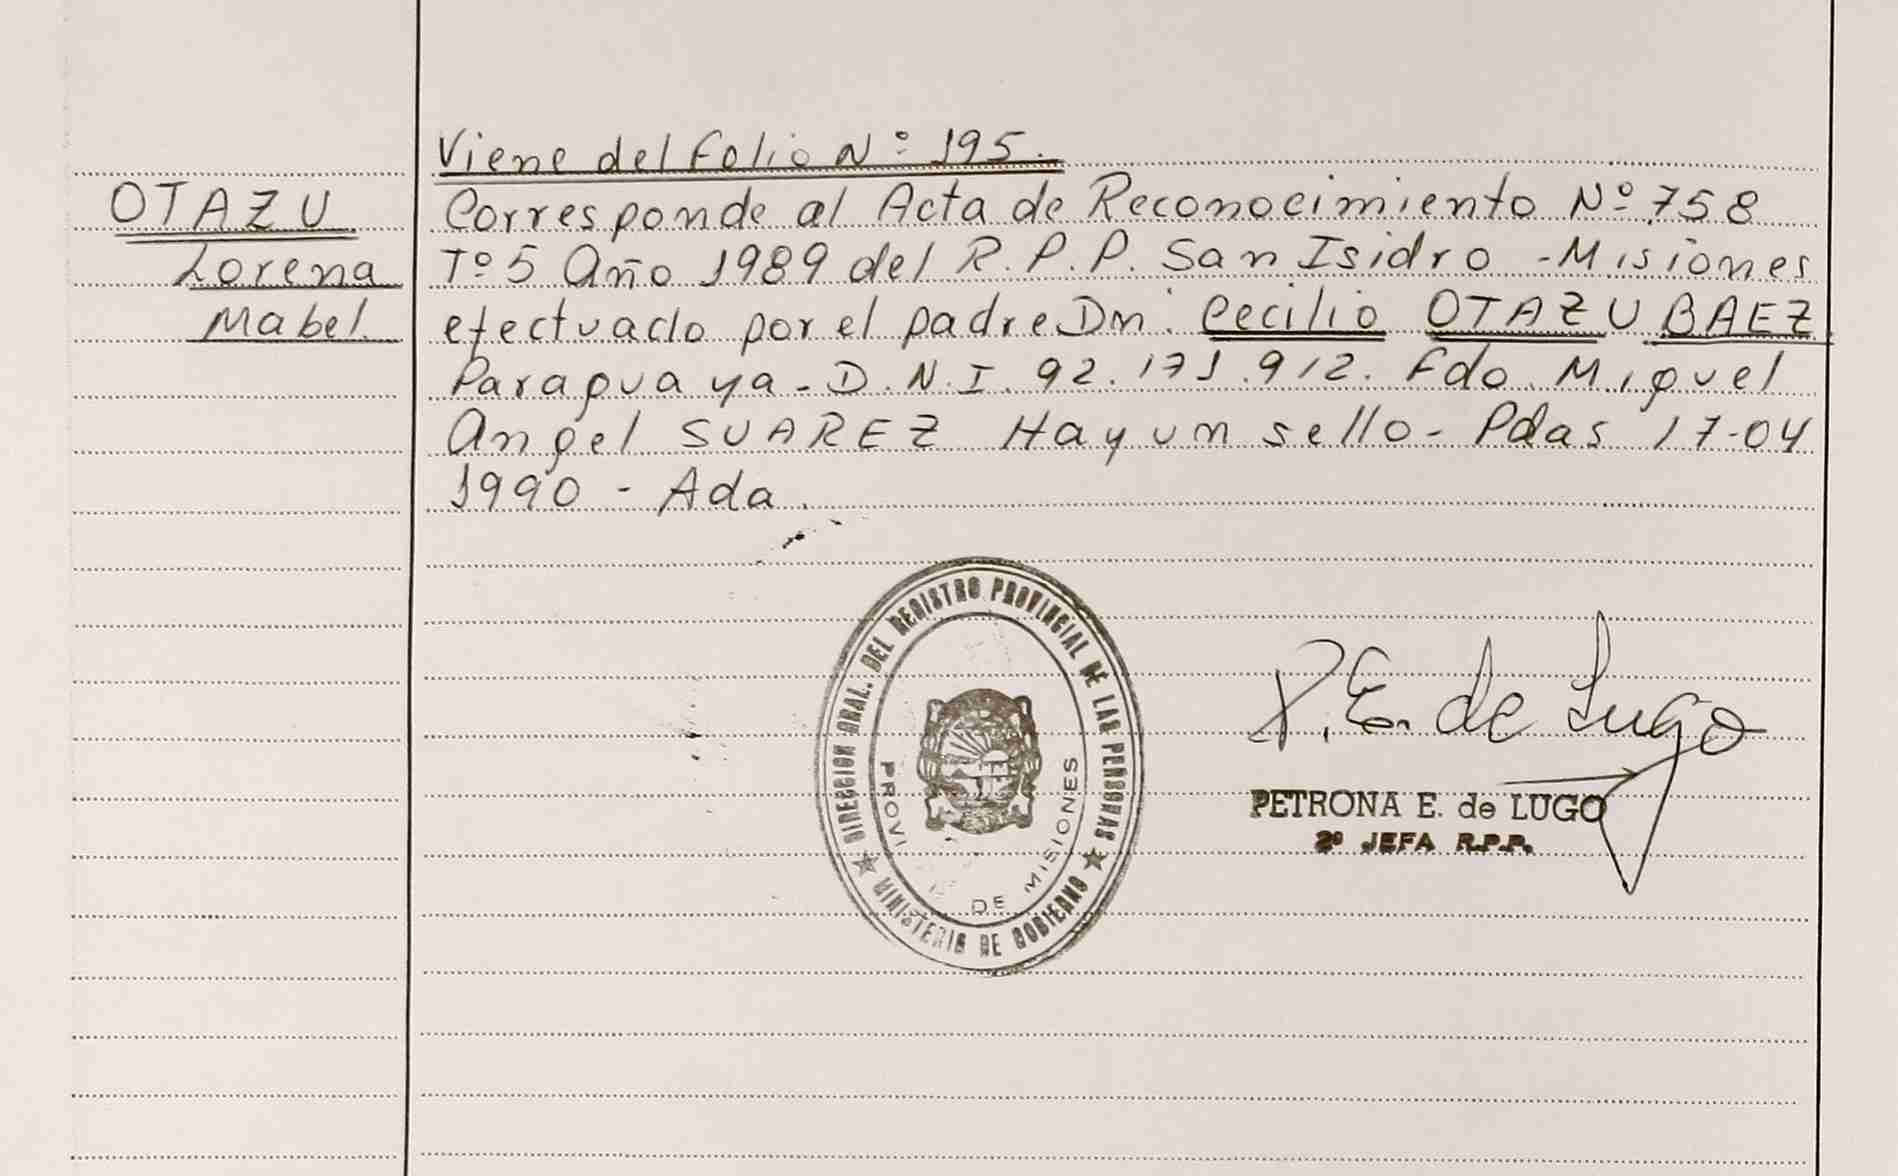 Viene del Folio Nº 195.
OTAZU
Lorena
Mabel.
Corresponde al Acta de Reconocimiento Nº 758
Tº 5 Año 1989 del R.P.P. San Isidro - Misiones
efectuado por el padre Dn. Cecilio OTAZU BAEZ
Paraguaya - D.N.I. 92.171.912. Fdo. Miguel
Angel SUAREZ Hay un sello - Pdas 17-04
1990 - Ada.
DIRECCION GRAL. DEL REGISTRO PROVINCIAL DE LAS PERSONAS
MINISTERIO DE GOBIERNO
PROVI
DE MISIONES
P. E. de Lugo
PETRONA E. de LUGO
2º JEFA R.P.P.